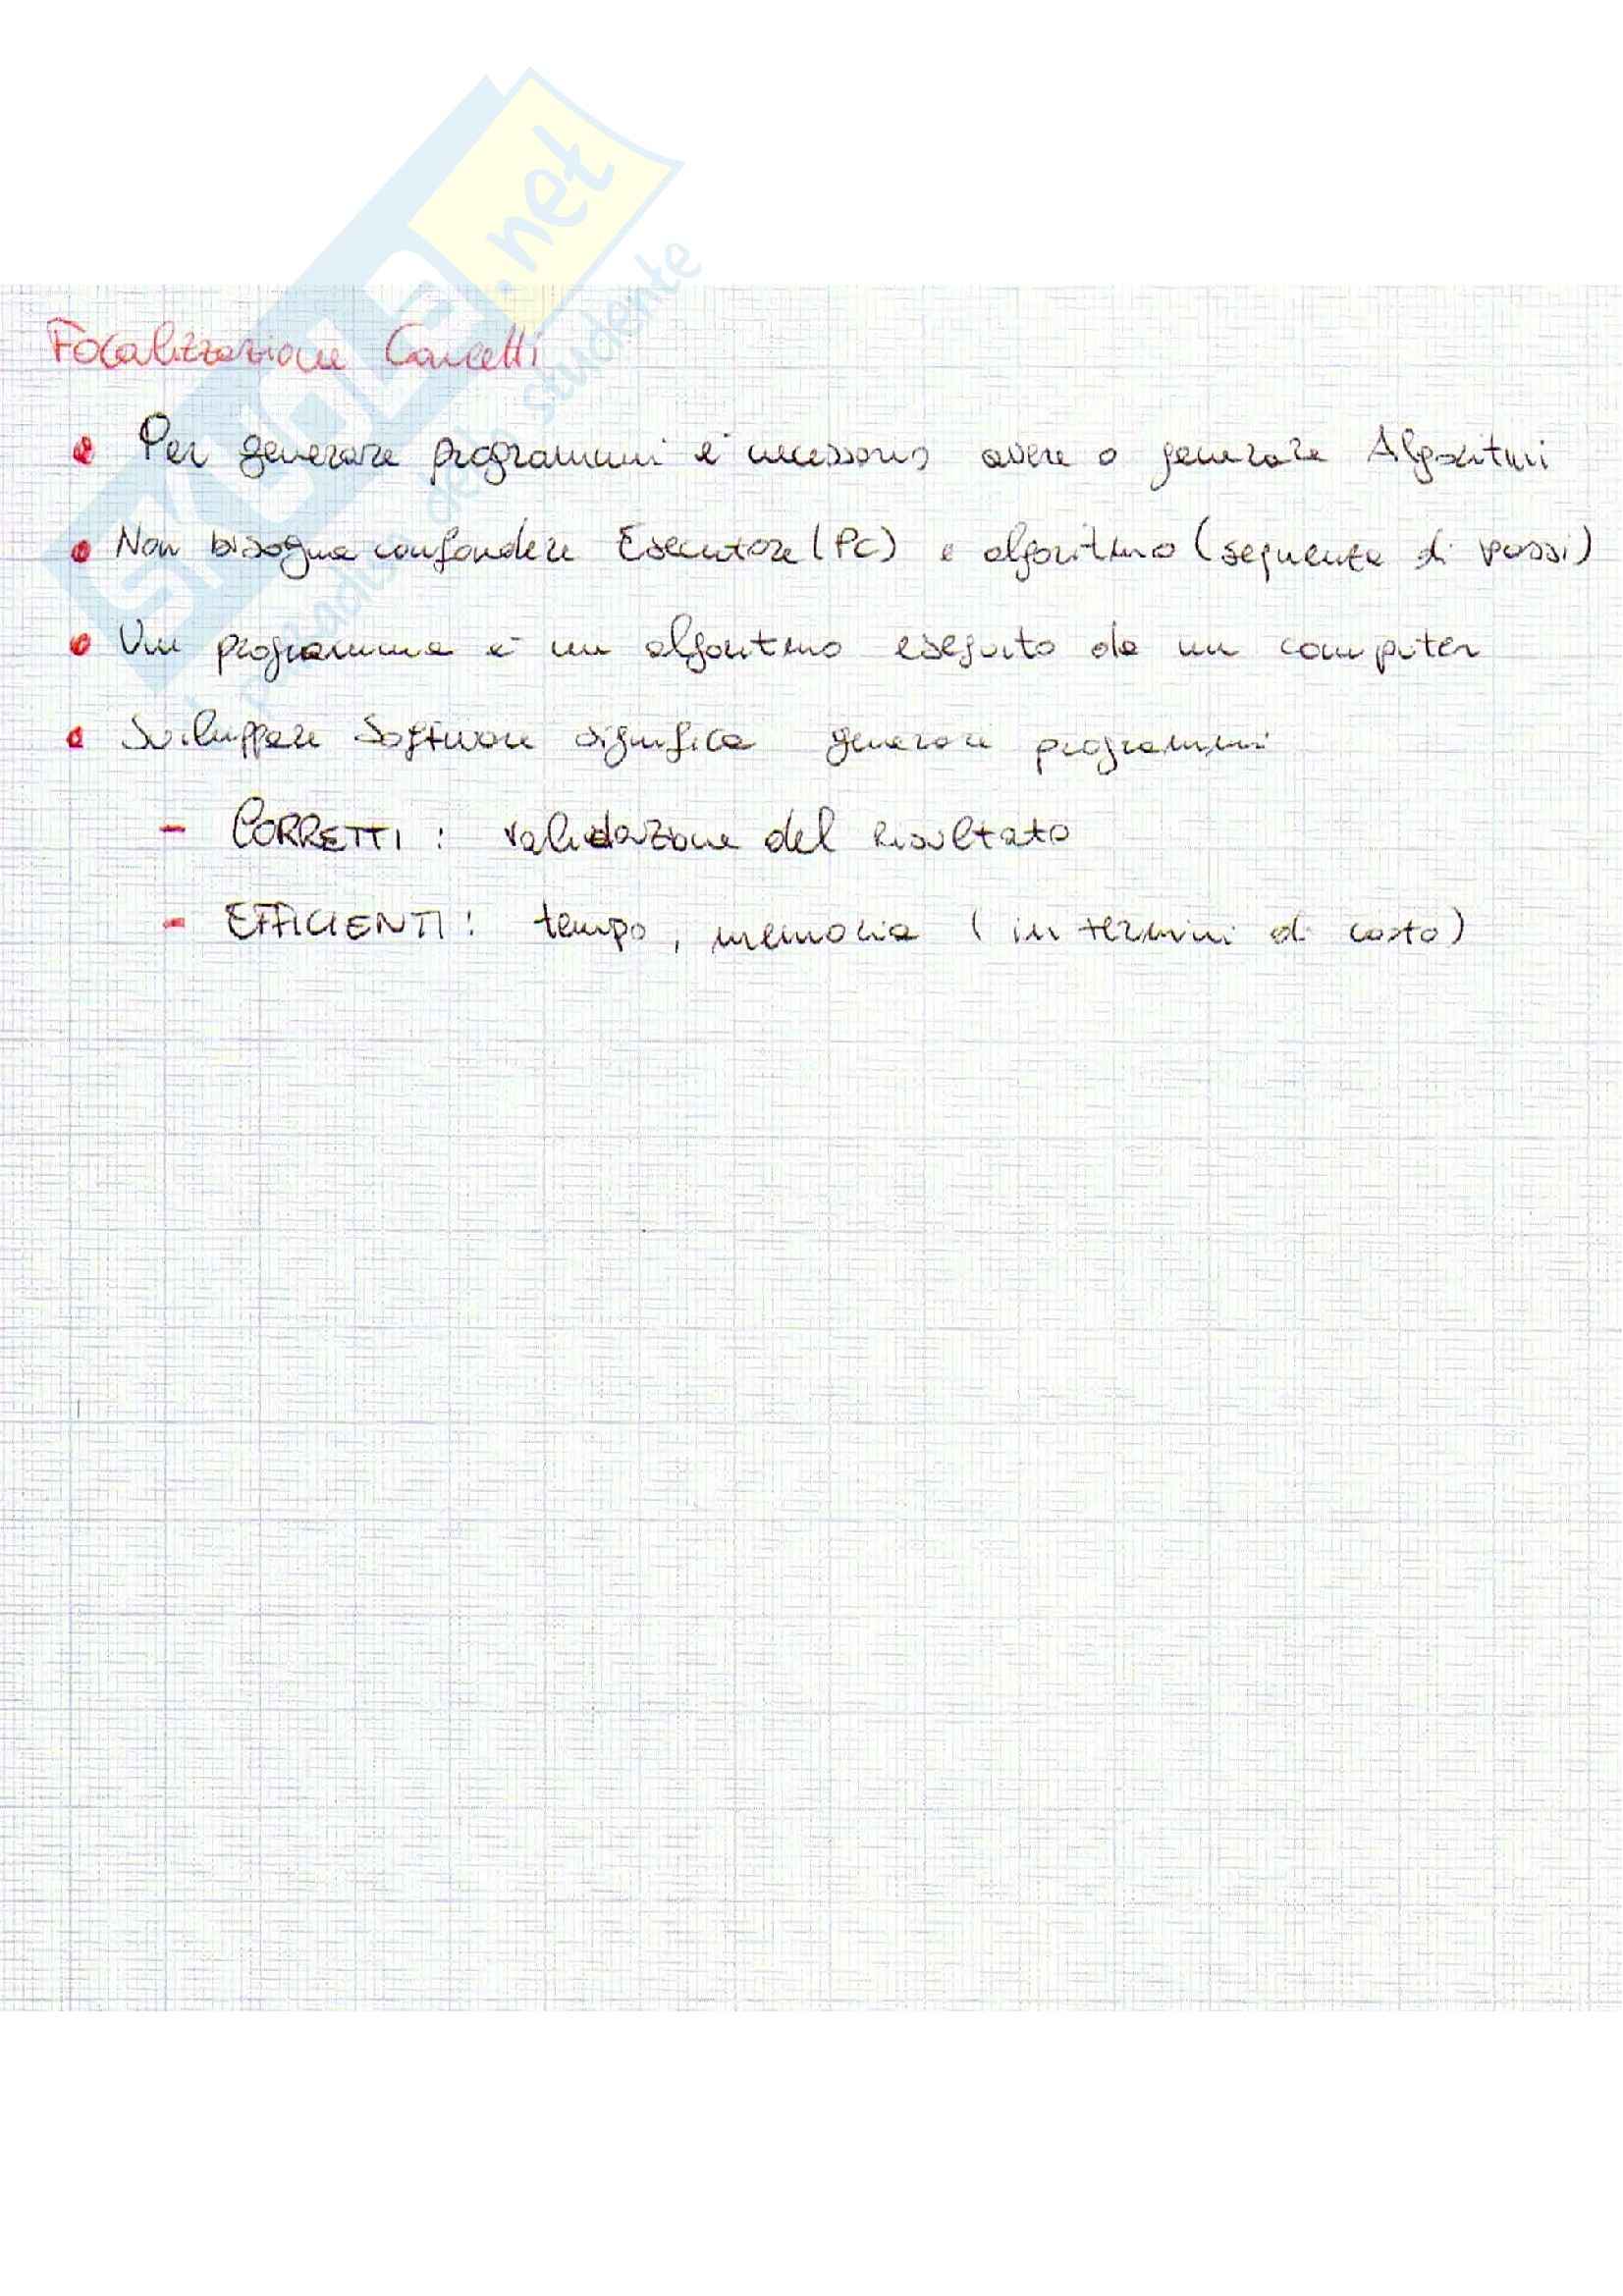 SKUOLA.net
il paradiso dello studente
Focalizzazione Concetti
• Per generare programmi è necessario avere o generare Algoritmi
• Non bisogna confondere Esecutore (PC) e algoritmo (sequenza di passi)
• Un programma è un algoritmo eseguito da un computer
• Sviluppare Software significa generare programmi
- CORRETTI : validazione del risultato
- EFFICIENTI : tempo, memoria (in termini di costo)